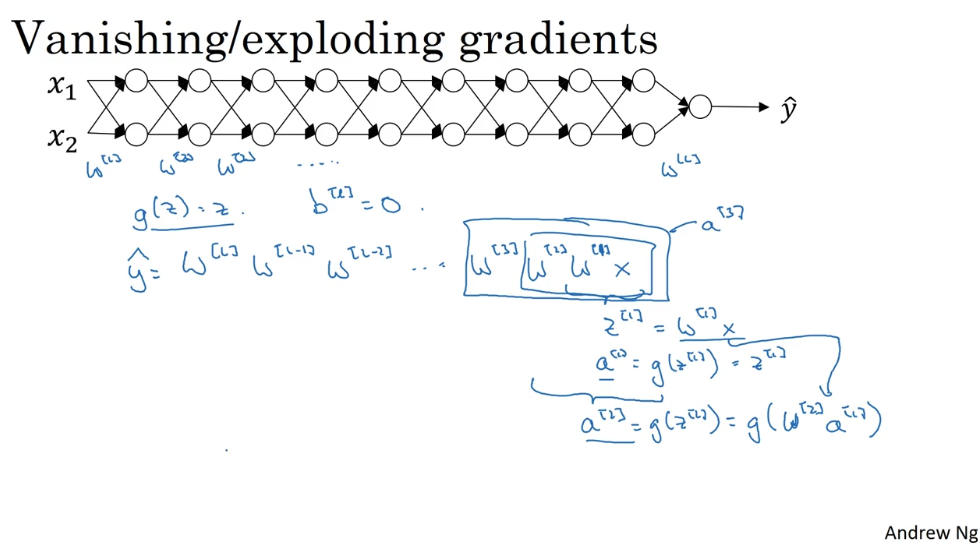 Vanishing/exploding gradients
x₁
x₂
ŷ
w^[1] w^[2] w^[3] ..... w^[L]
g(z) = z. b^[l] = 0.
a^[3]
ŷ = w^[L] w^[L-1] w^[L-2] ... w^[3] w^[2] w^[1] x
z^[1] = w^[1] x
a^[1] = g(z^[1]) = z^[1]
a^[2] = g(z^[2]) = g(w^[2] a^[1])
Andrew Ng